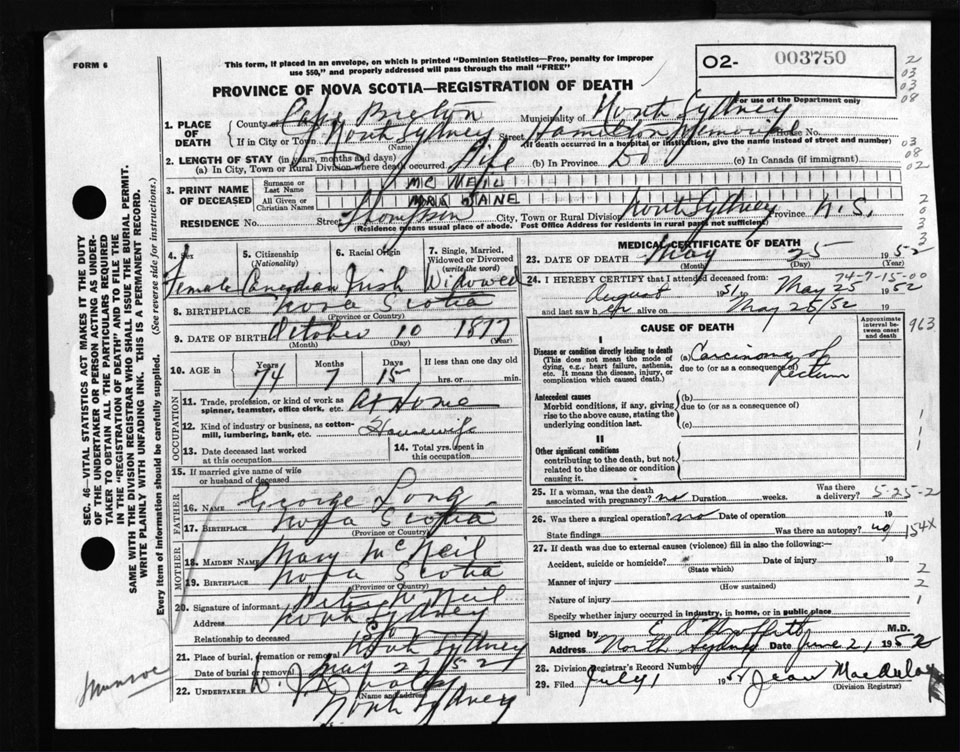 FORM 6
This form, if placed in an envelope, on which is printed "Dominion Statistics—Free, penalty for improper
use $50," and properly addressed will pass through the mail "FREE"
02- 003750
For use of the Department only
PROVINCE OF NOVA SCOTIA—REGISTRATION OF DEATH
1. PLACE OF DEATH
County of Cape Breton Municipality of North Sydney
If in City or Town North Sydney Street Hamilton Memorial House No.
(Name) (If death occurred in a hospital or institution, give the name instead of street and number)
2. LENGTH OF STAY (in years, months and days)
(a) In City, Town or Rural Division where death occurred Life (b) In Province Do (c) In Canada (if immigrant)
3. PRINT NAME OF DECEASED
Surname or Last Name MC NEIL
All Given or Christian Names JANE
RESIDENCE No. Street Thompson City, Town or Rural Division North Sydney Province N.S.
(Residence means usual place of abode. Post Office Address for residents in rural parts not sufficient)
4. Sex Female
5. Citizenship (Nationality) Canadian
6. Racial Origin Irish
7. Single, Married, Widowed or Divorced (write the word) Widowed
8. BIRTHPLACE Nova Scotia
(Province or Country)
9. DATE OF BIRTH October 10 1877
(Month) (Day) (Year)
10. AGE in Years Months Days If less than one day old
74 7 15 hrs. or min.
OCCUPATION
11. Trade, profession, or kind of work as spinner, teamster, office clerk, etc. At Home
12. Kind of industry or business, as cotton-mill, lumbering, bank, etc. Housewife
13. Date deceased last worked at this occupation
14. Total yrs. spent in this occupation
15. If married give name of wife or husband of deceased
FATHER
16. NAME George Long
17. BIRTHPLACE Nova Scotia
(Province or Country)
MOTHER
18. MAIDEN NAME Mary McNeil
19. BIRTHPLACE Nova Scotia
(Province or Country)
20. Signature of informant McNeil
Address North Sydney
Relationship to deceased Son
21. Place of burial, cremation or removal North Sydney
Date of burial or removal May 27/52
22. UNDERTAKER
(Name and address)
North Sydney
MEDICAL CERTIFICATE OF DEATH
23. DATE OF DEATH May 25 1952
(Month) (Day) (Year)
74-7-15-00
24. I HEREBY CERTIFY that I attended deceased from:
August 1951 to May 25 1952
and last saw her alive on May 25/52
CAUSE OF DEATH
Approximate interval between onset and death
963
I
Disease or condition directly leading to death
(This does not mean the mode of dying, e.g., heart failure, asthenia, etc. It means the disease, injury, or complication which caused death.)
(a) Carcinoma of
due to (or as a consequence of) rectum
Antecedent causes
Morbid conditions, if any, giving rise to the above cause, stating the underlying condition last.
(b)
due to (or as a consequence of)
(c)
II
Other significant conditions
contributing to the death, but not related to the disease or condition causing it.
25. If a woman, was the death associated with pregnancy? no Duration weeks. Was there a delivery?
5-25-2
26. Was there a surgical operation? no Date of operation 19
State findings Was there an autopsy? no
154X
27. If death was due to external causes (violence) fill in also the following:—
Accident, suicide or homicide? Date of injury 19
(State which)
Manner of injury
(How sustained)
Nature of injury
Specify whether injury occurred in industry, in home, or in public place
Signed by M.D.
Address North Sydney Date June 21 1952
28. Division Registrar's Record Number
29. Filed July 1 19
(Division Registrar)
SEC. 46—VITAL STATISTICS ACT MAKES IT THE DUTY
OF THE UNDERTAKER OR PERSON ACTING AS UNDER-
TAKER TO OBTAIN ALL THE PARTICULARS REQUIRED
IN THE "REGISTRATION OF DEATH" AND TO FILE THE
SAME WITH THE DIVISION REGISTRAR WHO SHALL ISSUE THE BURIAL PERMIT.
WRITE PLAINLY WITH UNFADING INK. THIS IS A PERMANENT RECORD.
Every item of information should be carefully supplied. (See reverse side for instructions.)
Munroe